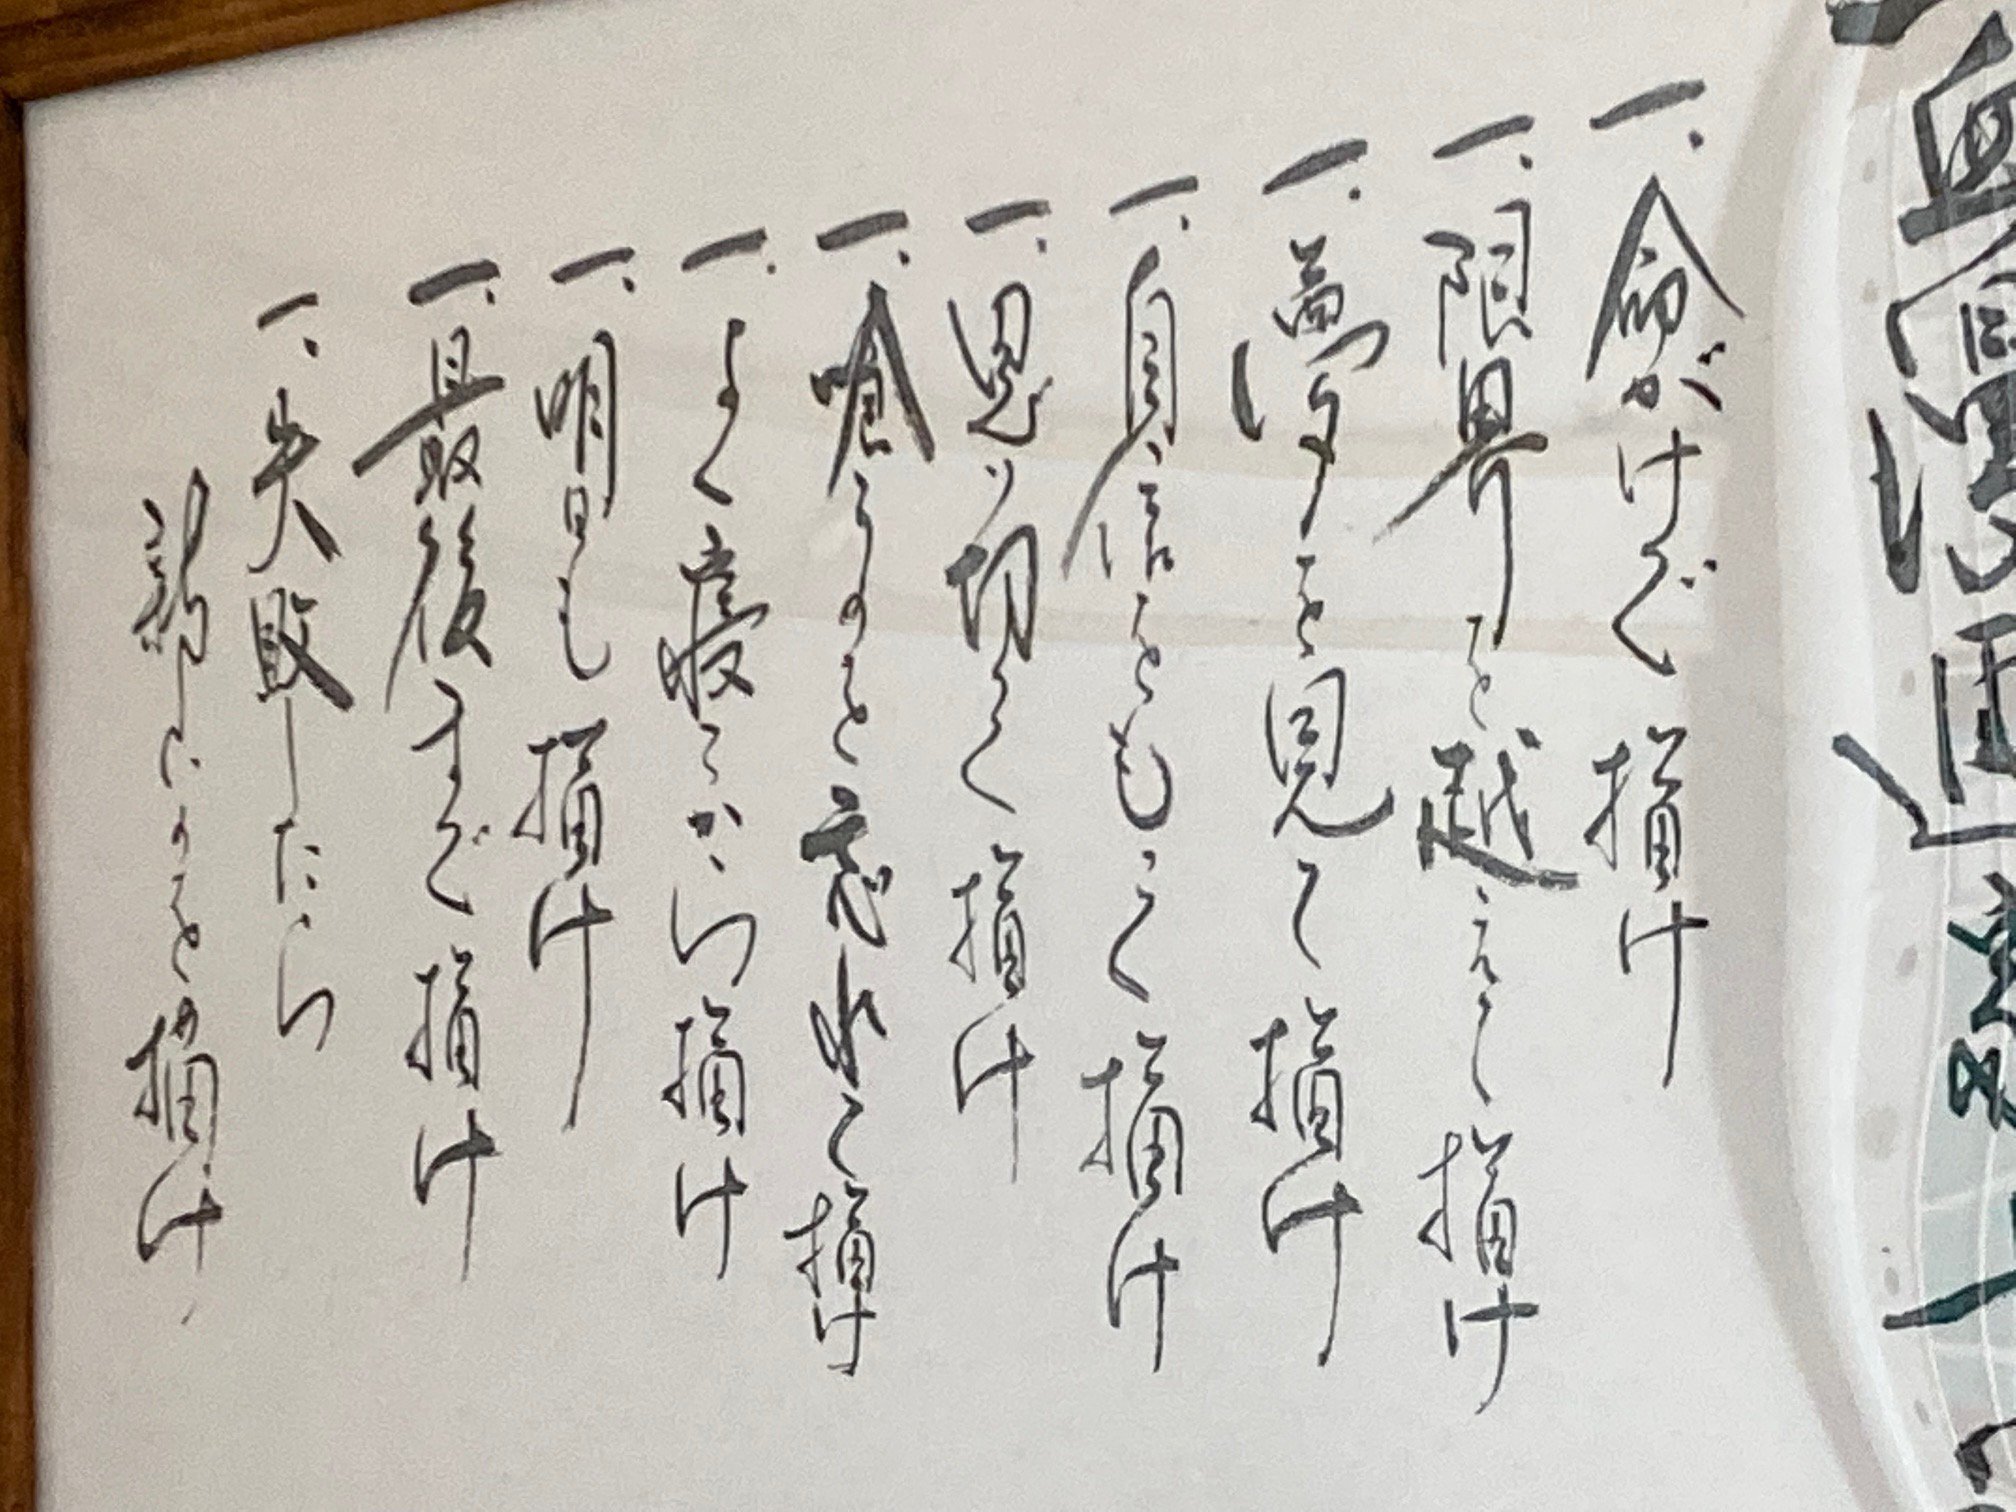 一、命がけで描け
一、限界を越えて描け
一、夢を見て描け
一、自信をもって描け
一、思い切って描け
一、喰うのを忘れて描け
一、よく寝てから描け
一、明日も描け
一、最後まで描け
一、失敗したら
新しいのを描け